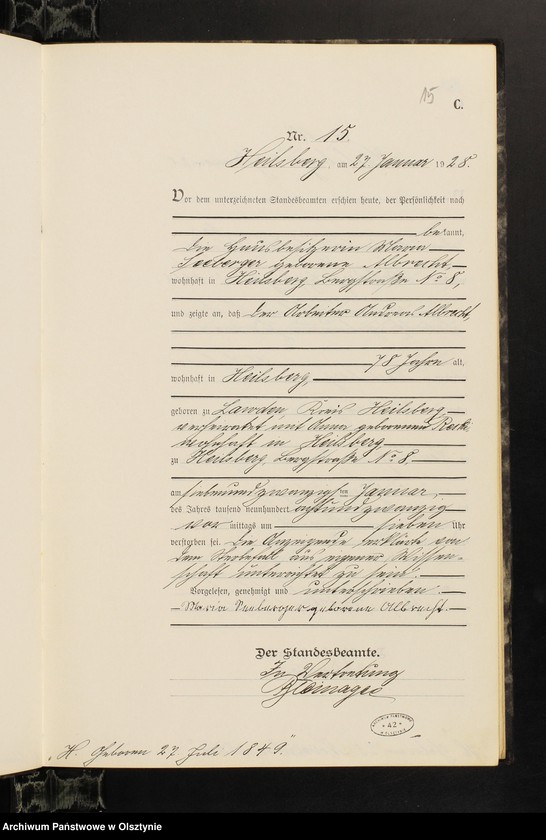 15
C.
Nr. 15.
Heilsberg, am 27 Januar 1928.
Vor dem unterzeichneten Standesbeamten erschien heute, der Persönlichkeit nach
bekannt,
die Hausbesitzerin Maria
Seeberger geborene Albrecht
wohnhaft in Heilsberg Bergstraße No 8,
und zeigte an, daß der Arbeiter Albrecht
78 Jahre alt,
wohnhaft in Heilsberg,
geboren zu Lawden, Kreis Heilsberg,
verheiratet mit Anna geborenen
wohnhaft in Heilsberg
zu Heilsberg, Bergstraße No 8.
am siebenundzwanzigsten Januar,
des Jahres tausend neunhundert achtundzwanzig
vor mittags um sieben Uhr
verstorben sei. Die Anzeigende erklärte von
dem Sterbefall aus eigener Wissen-
schaft unterrichtet zu sein.
Vorgelesen, genehmigt und unterschrieben.
Maria Seeberger geborene Albrecht.
Der Standesbeamte.
In Vertretung
"H. Geboren 27 Juli 1849."
Archiwum Państwowe w Olsztynie